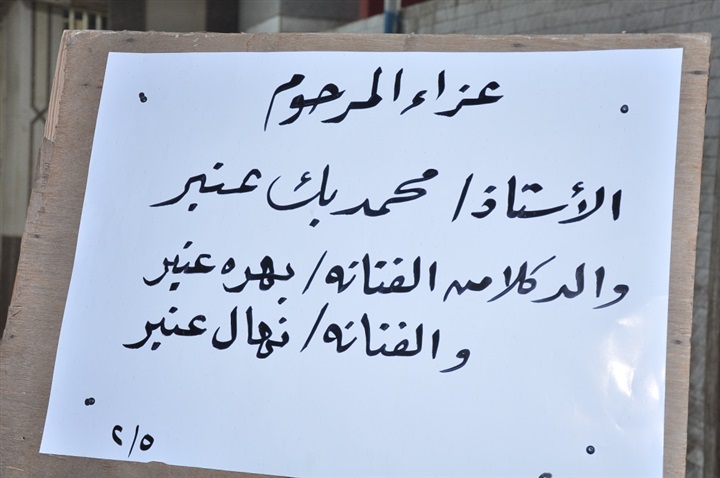 عزاء المرحوم
الأستاذ/ محمد بك عنبر
والد كلا من الفنانه/ نهره عنبر
والفنانه/ نهال عنبر
٢/٥